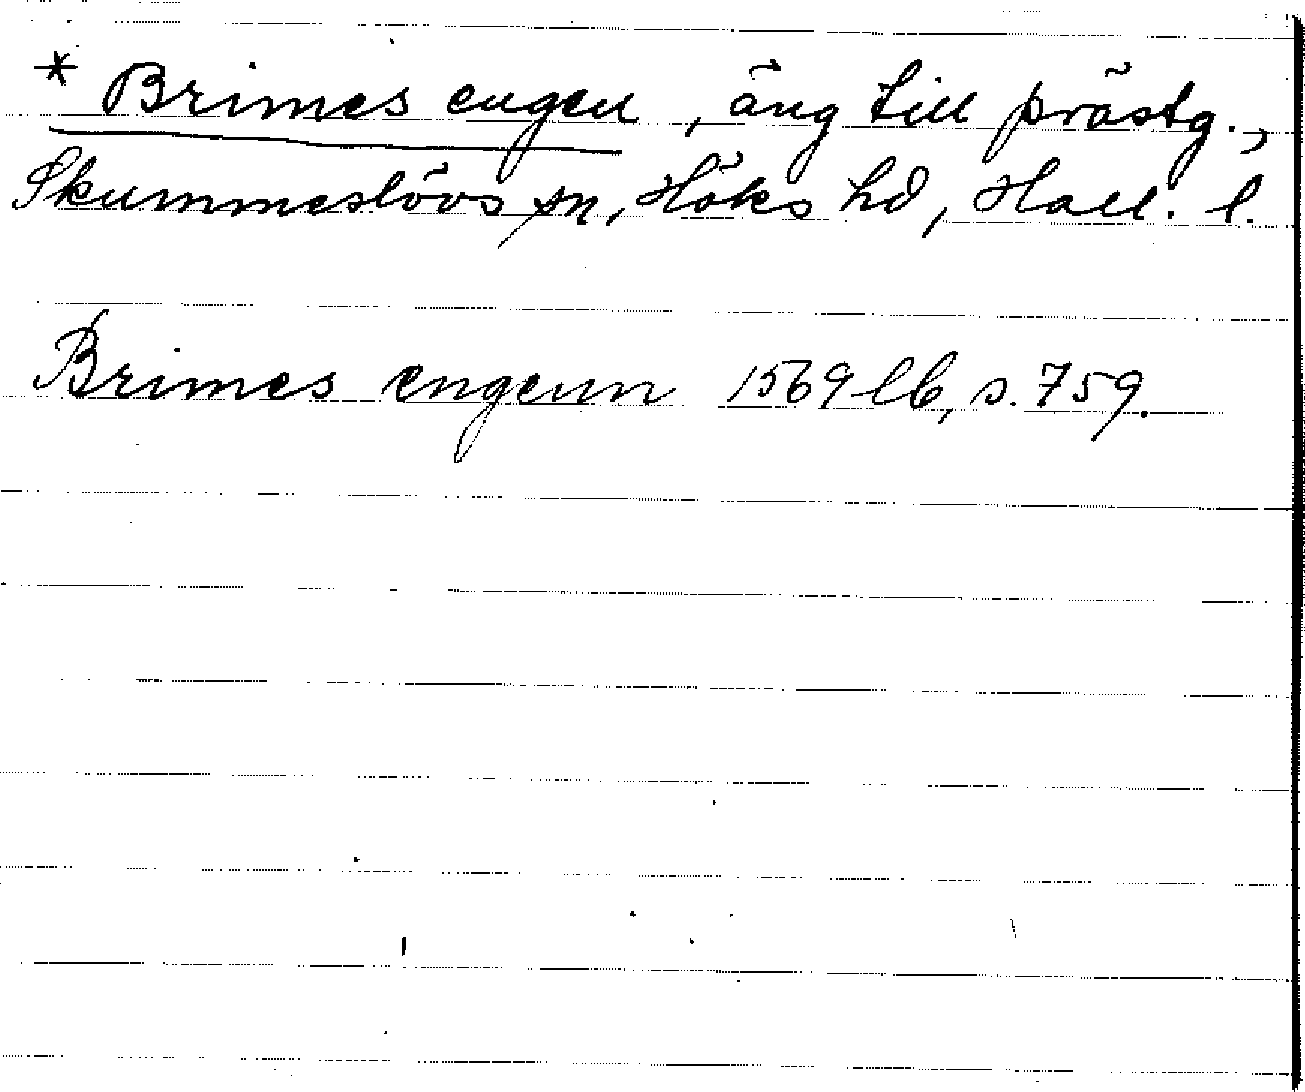 * Brimes engen, äng till prästg.,
Skummeslövs sn, Höks hd, Hall. l.
Brimes engenn 1569 lb, s. 759.